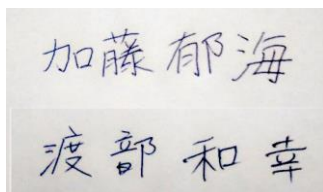 加藤郁海
渡部和幸